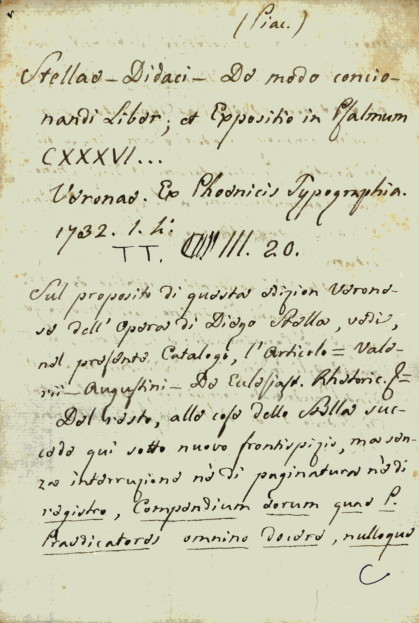 (Piac.)
Stellae - Didaci - De modo concio-
nandi Liber; et Expositio in Psalmum
CXXXVI...
Veronae. Ex Phoenicis Typographia.
1732. 1. h:
TT. III. 20.
Sul proposito di questa edizion Verone-
se dell'Opera di Diego Stella, vedi,
nel presente Catalogo, l'Articolo = Vale-
rii - Augustini - De Eclesiast. Rhetoric. =
Del resto, alle cose dello Stella suc-
cede qui sotto nuovo frontispizio, ma sen-
za interruzione nè di paginatura nè di
registro, Compendium eorum quae P.
Praedicatores omnino docere, nulloque